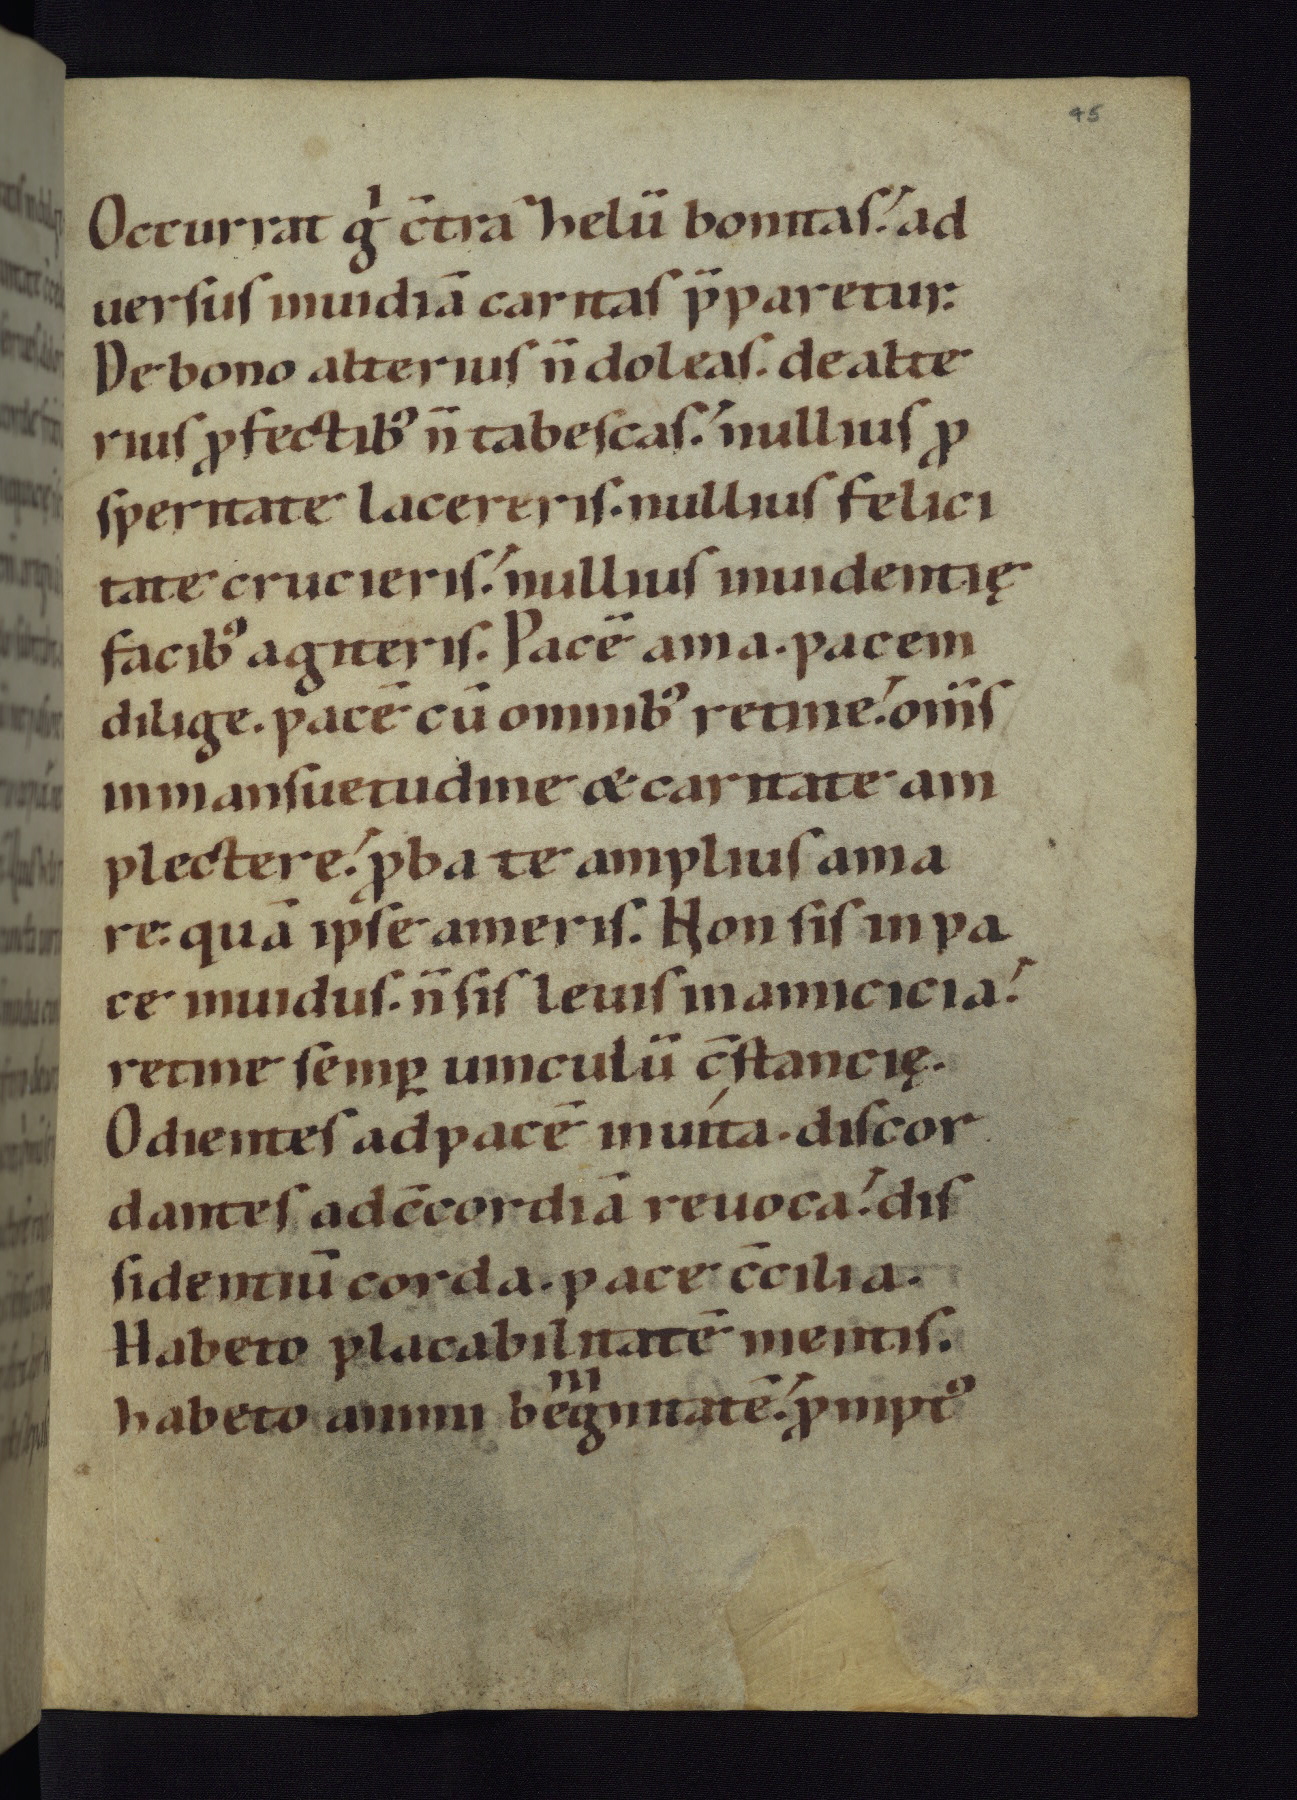 45
Occurrat gͥ c̄tra helū bonitas. ad
uersus inuidiā caritas p̄paretur.
De bono alterius n̄ doleas. de alte
rius ꝓfectib⁹ n̄ tabescas. nullius ꝓ
speritate lacereris. nullius felici
tate crucieris. nullius inuidentię
facib⁹ agiteris. Pacē ama. pacem
dilige. pacē cū omnib⁹ retine. om̄s
in mansuetudine & caritate am
plectere. ꝓba te amplius ama
re: quā ipse ameris. Non sis in pa
ce inuidus. n̄ sis leuis in amicicia.
retine semꝑ uinculū c̄stancię.
Odientes ad pacē inuita. discor
dantes ad c̄cordiā reuoca. dis
sidentiū corda. pace c̄cilia.
Habeto placabilitatē mentis.
habeto animi beͫgnitatē. ꝓmpt⁹